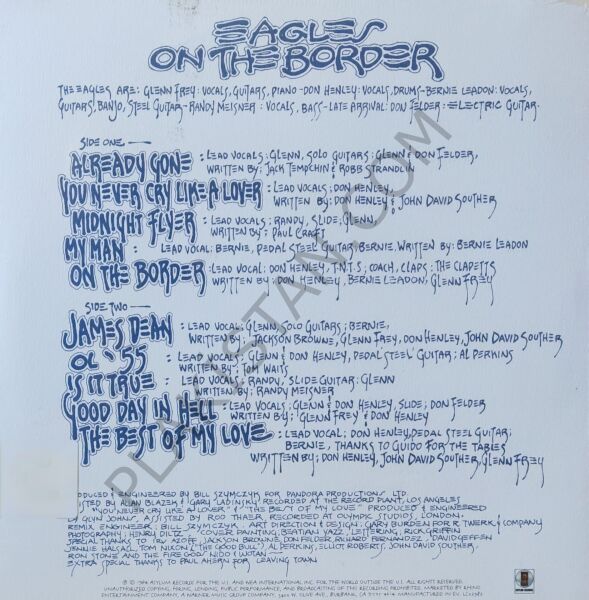 EAGLES
ON THE BORDER
THE EAGLES ARE: GLENN FREY: VOCALS, GUITARS, PIANO-DON HENLEY: VOCALS, DRUMS-BERNIE LEADON: VOCALS,
GUITARS, BANJO, STEEL GUITAR-RANDY MEISNER: VOCALS, BASS-LATE ARRIVAL: DON FELDER: ELECTRIC GUITAR
SIDE ONE —
ALREADY GONE : LEAD VOCALS: GLENN, SOLO GUITARS: GLENN & DON FELDER,
WRITTEN BY: JACK TEMPCHIN & ROBB STRANDLIN
YOU NEVER CRY LIKE A LOVER : LEAD VOCALS: DON HENLEY
WRITTEN BY: DON HENLEY & JOHN DAVID SOUTHER
MIDNIGHT FLYER : LEAD VOCALS; RANDY, SLIDE; GLENN,
WRITTEN BY: PAUL CRAFT
MY MAN : LEAD VOCAL: BERNIE, PEDAL STEEL GUITAR BERNIE. WRITTEN BY: BERNIE LEADON
ON THE BORDER : LEAD VOCAL: DON HENLEY, T.N.T.S; COACH, CLAPS: THE CLAPETTS
WRITTEN BY: DON HENLEY, BERNIE LEADON, GLENN FREY
SIDE TWO —
JAMES DEAN : LEAD VOCAL; GLENN, SOLO GUITARS; BERNIE,
WRITTEN BY: JACKSON BROWNE, GLENN FREY, DON HENLEY, JOHN DAVID SOUTHER
OL '55 : LEAD VOCALS: GLENN & DON HENLEY, PEDAL STEEL GUITAR; AL PERKINS
WRITTEN BY: TOM WAITS
IS IT TRUE : LEAD VOCALS; RANDY, SLIDE GUITAR: GLENN
WRITTEN BY; RANDY MEISNER
GOOD DAY IN HELL : LEAD VOCALS; GLENN & DON HENLEY, SLIDE; DON FELDER
WRITTEN BY; GLENN FREY & DON HENLEY
THE BEST OF MY LOVE : LEAD VOCAL; DON HENLEY, PEDAL STEEL GUITAR;
BERNIE, THANKS TO GUIDO FOR THE TABLES
WRITTEN BY; DON HENLEY, JOHN DAVID SOUTHER, GLENN FREY
PRODUCED & ENGINEERED BY BILL SZYMCZYK FOR PANDORA PRODUCTIONS LTD.
ASSISTED BY ALLAN BLAZEK & GARY LADINSKY RECORDED AT THE RECORD PLANT, LOS ANGELES
"YOU NEVER CRY LIKE A LOVER" & "THE BEST OF MY LOVE" PRODUCED & ENGINEERED
BY GLYN JOHNS, ASSISTED BY ROD THAER RECORDED AT OLYMPIC STUDIOS, LONDON.
REMIX ENGINEER: BILL SZYMCZYK ART DIRECTION & DESIGN: GARY BURDEN FOR R. TWERK & COMPANY
PHOTOGRAPHY: HENRY DILTZ COVER PAINTING: BEATIEN YAZZ LETTERING: RICK GRIFFIN
SPECIAL THANKS TO: IRV AZOFF, JACKSON BROWNE, DON FELDER, RICHARD FERNANDEZ, DAVID GEFFEN
JENNIE HALSALL, TOM NIXON ("THE GOOD BULL"), AL PERKINS, ELLIOT ROBERTS, JOHN DAVID SOUTHER,
RON STONE AND THE FIRE GONG, NIDO & UITAN
EXTRA SPECIAL THANKS TO PAUL AHERN FOR LEAVING TOWN
℗ © 1974 ASYLUM RECORDS FOR THE U.S. AND WEA INTERNATIONAL INC. FOR THE WORLD OUTSIDE THE U.S. ALL RIGHTS RESERVED.
UNAUTHORIZED COPYING, HIRING, LENDING, PUBLIC PERFORMANCE, AND BROADCASTING OF THIS RECORDING PROHIBITED. MARKETED BY RHINO
ENTERTAINMENT COMPANY, A WARNER MUSIC GROUP COMPANY, 3400 W. OLIVE AVE., BURBANK, CA
PLAKISTAN.COM